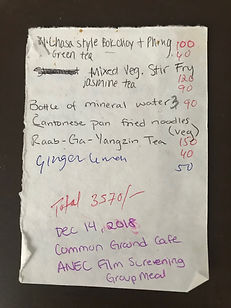 Lhasa style Bok Choy + Phing 100
Green tea 40
Mixed Veg. Stir Fry 120
Jasmine tea 90
Bottle of mineral water 3 90
Cantonese pan fried noodles
(veg)
Raab-Ga-Yangzin Tea 150
Ginger Lemon 40
50
Total 3570/-
Dec 14, 2018
Common Ground Cafe
ANEC Film Screening
Group Meal